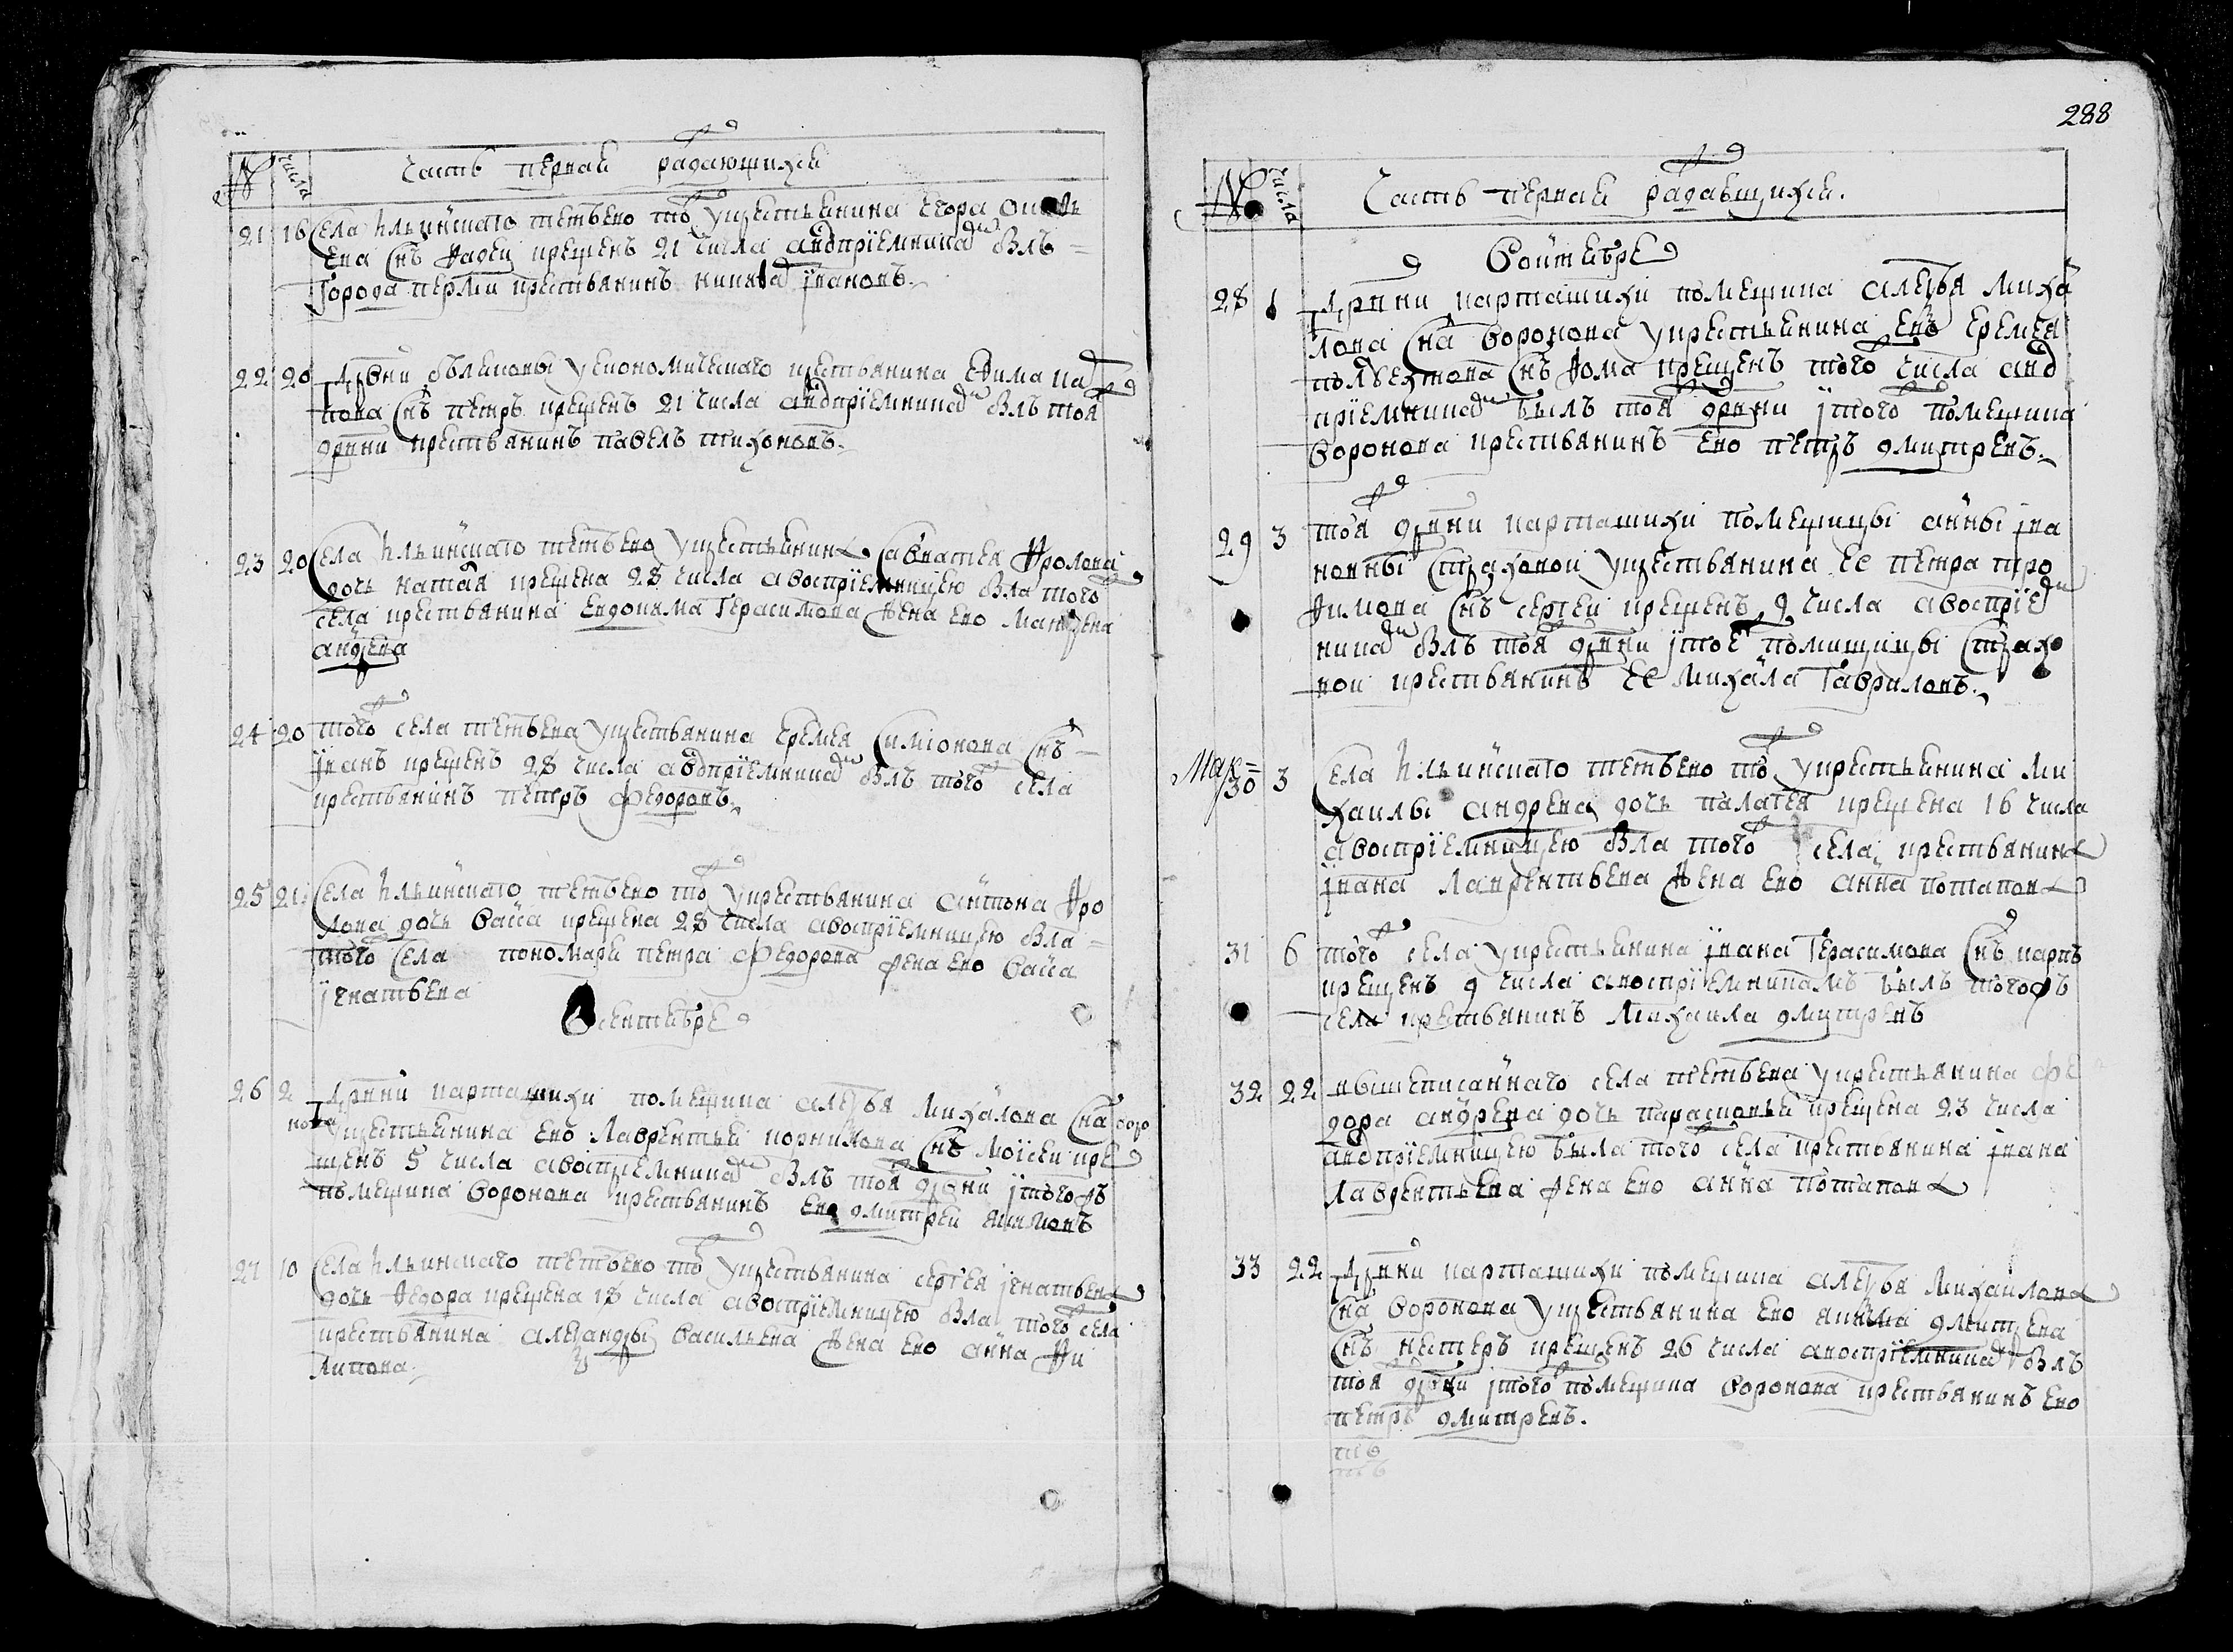 № числа Часть первая раждающихся
21 16 Села Ильинскаго тетьево то ж у крестьянина Егора
ева снъ Фадей крещенъ 21 числа а воспрїемникомъ былъ
города перми крестьянинъ никита ївановъ.
22 20 Дрвни у економическаго крестьянина Екима
пова снъ петръ крещенъ 21 числа а воспрїемникомъ былъ тоя ж
дрвни крестьянинъ павелъ тихоновъ.
23 20 Села Ильинскаго тетьево у крестьянина Савватея Фролова
дочь наталя крещена 28 числа а воспрїемницею была того ж
села крестьянина евдокима Герасимова жена ево
андрева
24 20 того ж села тетьева у крестьянина Еремея Симїонова снъ
їванъ крещенъ 28 числа а воспрїемникомъ былъ того ж села
крестьянинъ петръ федоровъ.
25 21 Села Ильинскаго тетьево то ж у крестьянина антона Фро
лова дочь васса крещена 28 числа а воспрїемницею была
того ж села пономаря петра федорова жена ево васса
їгнатьева
сентебре
26 2 Дрвни карташихи помещика алеѯѣя михалова сна воро
нова у крестьянина ево лаврентья корнилова снъ моїсей кре
щенъ 5 числа а воспрїемникомъ былъ тоя ж дрвни ї того ж
помещика воронова крестьянинъ ево дмитрей
27 10 Села Ильинскаго тетьево то ж у крестьянина сергея їгнатьева
дочь Федора крещена 18 числа а воспрїемницею была того ж села
крестьянина алеѯандры васильева жена ево анна Фи
липова.
288
№ числа Часть первая раждающихся.
Октебре
28 1 Дрвни карташихи помещика алеѯѣя миха
лова сна воронова у крестьянина ево еремея
полуехтова снъ Фома крещенъ того ж числа а во
прїемникомъ былъ тоя ж дрвни ї того ж помещика
воронова крестьянинъ ево петръ дмитревъ.
29 3 тоя ж дрвни карташихи помещицы анны їва
новны страховой у крестьянина ее петра тро
Фимова снъ сергей крещенъ 9 числа а воспрїем
никомъ былъ тоя ж дрвни ї тое ж помищицы страхо
вой крестьянинъ ее михаила гавриловъ.
30 3 Села Ильинскаго тетьево то ж у крестьянина ми
хаилы андрева дочь палагея крещена 16 числа
а воспрїемницею была того ж села крестьянина
ївана лаврентьева жена ево анна потапова
31 6 того ж села у крестьянина ївана Герасимова снъ карпъ
крещенъ 9 числа а воспрїемникамъ былъ того жъ
села крестьянинъ михаила дмитревъ
32 22 вышеписаннаго села тетьева у крестьянина фе
дора андрева дочь парасковья крещена 23 числа
а воспрїемницею была того ж села крестьянина ївана
лаврентьева жена ево анна потапова
33 22 Дрвни карташихи помещика алеѯѣя михаилова
сна воронова у крестьянина ево якима дмитрева
снъ нестеръ крещенъ 26 числа а воспрїемникомъ былъ
тоя ж дрвни ї того ж помещика воронова крестьянинъ ево
петръ дмитревъ.